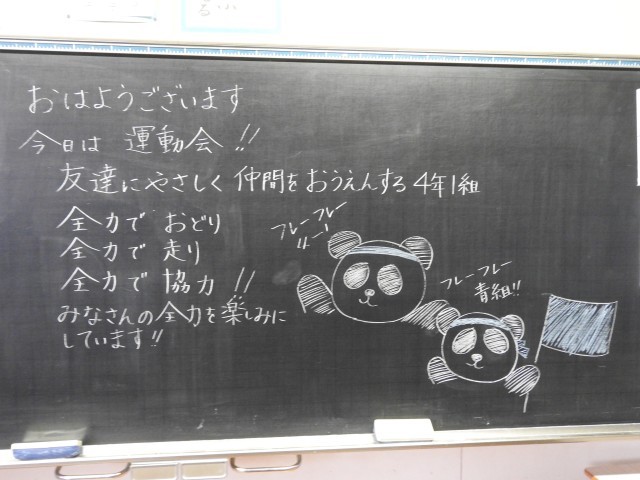 おはようございます
今日は 運動会!!
友達にやさしく 仲間をおうえんする4年1組
全力で おどり
全力で 走り
全力で 協力!!
みなさんの全力を楽しみに
しています!!
フレーフレー
4-1
フレーフレー
青組!!